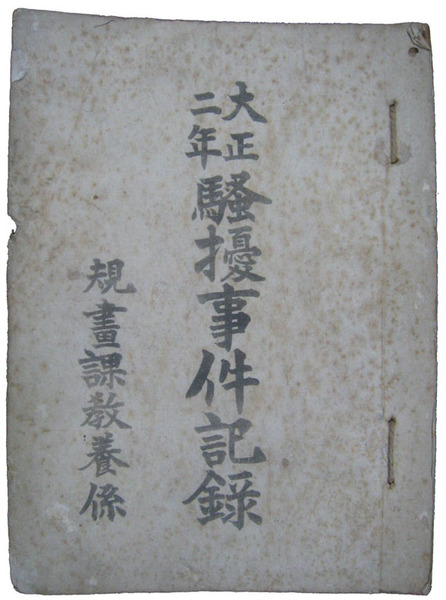 大正
二年
騷擾事件記錄
規畫課教養係